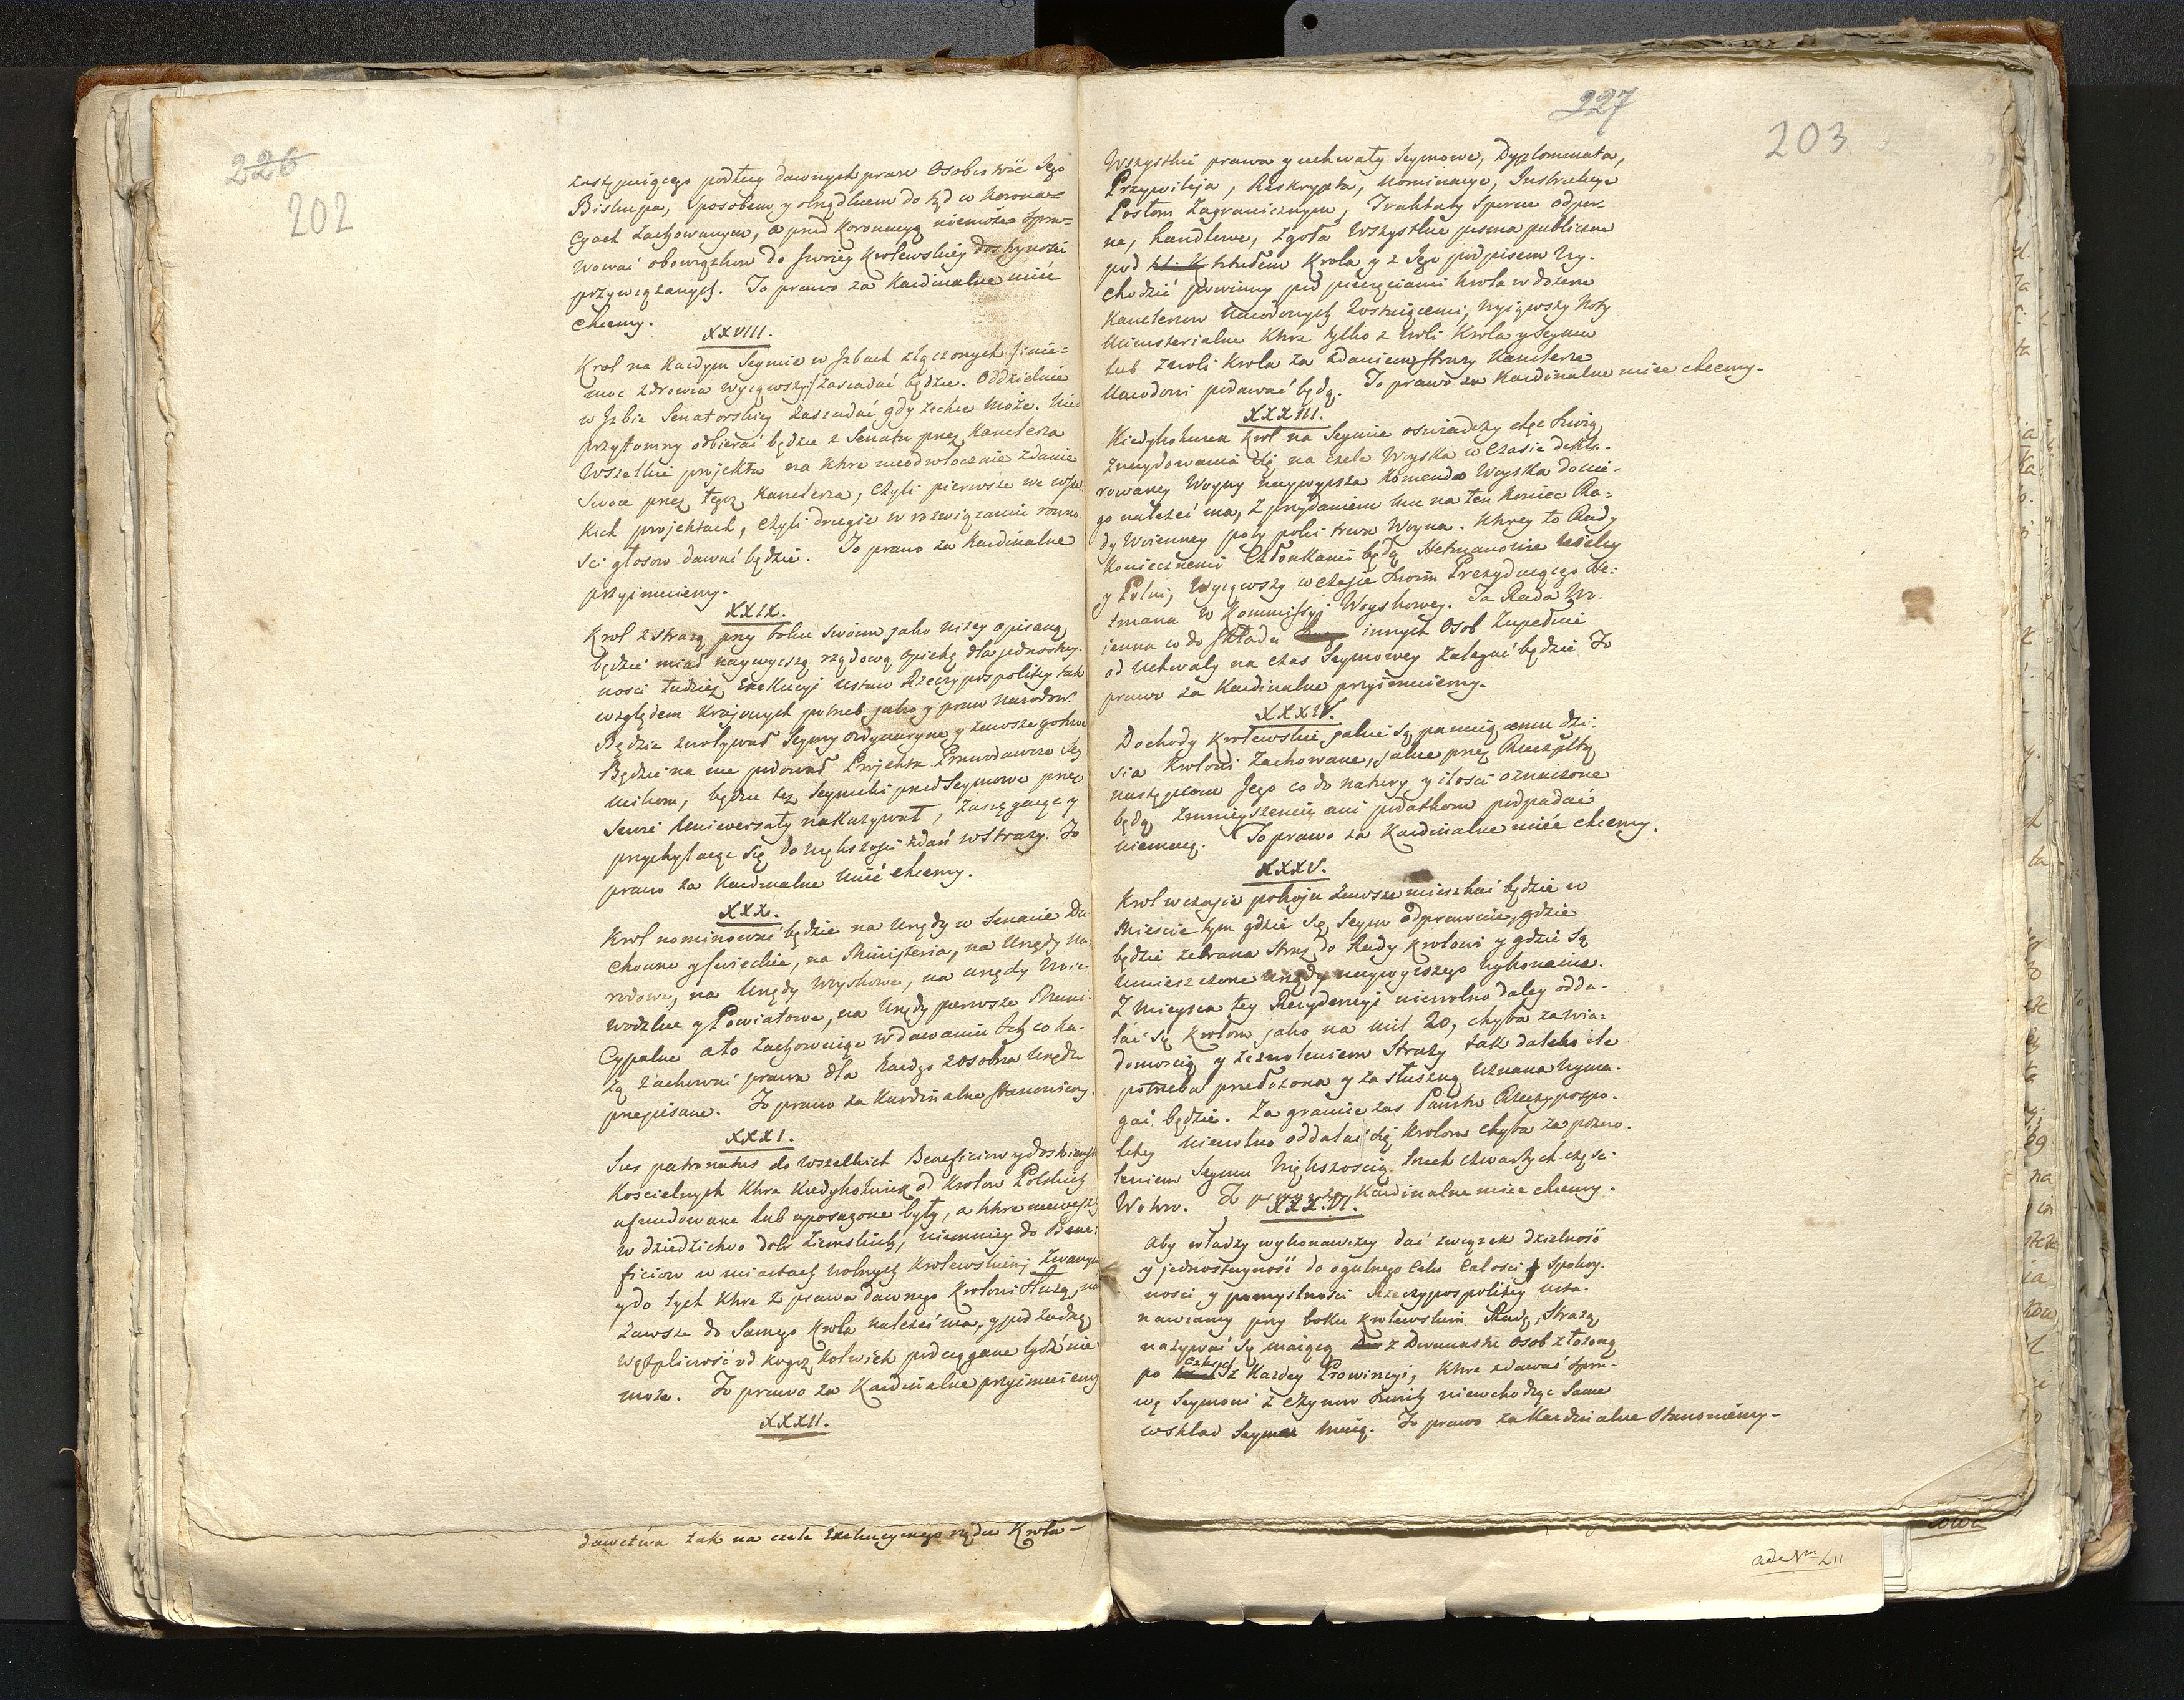 226
202
zastępuiącego podług dawnych praw Osobę tość Jego
Biskupa, sposobem y obrządkiem do tąd w Korona=
cyach zachowanym, a przed Koronacyą niemoże Spra=
wować obowiązkow do swoiey Krolewskiey dostoyności
przywiązanych. To prawo za Kardinalne mieć
chcemy.
XXVIII.
Krol na Kazdym Seymie w Izbach złączonych /: nie=
moc zdrowia wyiąwszy :/ zasiadać będzie. Oddzielnie
w Izbie Senatorskiey zasiadać gdy zechce może. Nie
przytomny odbierać będzie z Senatu przez Kanclerza
Wszelkie projekta na ktore nieodwłocznie zdanie
Swoie przez tegoż Kanclerza, czyli pierwsze we wszel
kich projektach, czyli drugie w rozwiązaniu rowno
ści głosow dawać będzie. To prawo za Kardinalne
przyimuiemy.
XXIX.
Krol z strażą przy boku swoim jako niżey opisaną
będzie miał naywyzszą rządową opiekę dla jednostay=
ności tudziez Exekucyi Ustaw Rzeczypospolitey tak
względem Krajowych potrzeb jako y praw Narodow.
Będzie zwoływał Seymy Ordynaryine y zawsze gotowe
Będzie na nie podawał Projekta Prawodawcze Sey
mikom, będzie też Seymiki przed Seymowe przez
Swoie Uniwersały nakazywał, zasięgaiąc y
przychylaiąc się do większości zdań w Straży. To
prawo za Kardinalne mieć chcemy.
XXX.
Krol nominować będzie na Urzędy w Senacie Du
chowne y świeckie, na Ministeria, na Urzędy Na
rodowe, na Urzędy Woyskowe, na urzędy Woie=
wodzkie y Powiatowe, na Urzędy pierwsze Muni=
cypalne a to zachowuiąc w dawaniu tych co ka-
żą zachować prawa dla każdego z osobna Urzędu
przepisane. To prawo za Kardinalne stanowiemy.
XXXI.
Jus patronatus do wszelkich Beneficiow y dostoieństw
Koscielnych ktore kiedykolwiek od Krolow Polskich
ufundowane lub uposażone były, a ktore nieweszły
w dziedzictwo dobr Ziemskich, niemniey do Bene=
ficiow w miastach wolnych Krolewskiemi Zwanych
y do tych ktore z prawa dawnego Krolowi służą, na
zawsze do Samego Krola należeć ma, y pod żadną
wątpliwość od kogoż kolwiek podciągane bydź nie
może. To prawo za Kardinalne przyimuiemy
XXXII.
dawctwa tak na czele Exekucyinego rządu Krola-
227
203
Wszystkie prawa y uchwały Seymowe, Dyplommata,
Przywileja, Reskrypta, Nominacye, Instrukcye
Posłom Zagranicznym, Traktaty Sporne odpor-
ne, handlowe, zgoła Wszystkie pisma publiczne
pod tytułem Krola y z Jego podpisem wy-
chodzić powinny pod pieczęciami Krola w dozorze
Kanclerzow Narodowych zostaiącemi, wyiąwszy Noty
Ministerialne ktore tylko z woli Krola y Seymu
lub z woli Krola za zdaniem Straży Kanclerze
Narodowi podawać będą. To prawo za Kardinalne miec chcemy.
XXXIII.
Kiedykolwiek Krol na Seymie oświadczy chęć Swoię
znaydowania się na czele Woyska w czasie dekla-
rowaney Woyny naywyższa Komenda Woyska do nie-
go należeć ma, z przydaniem mu na ten koniec Ra=
dy Woienney poty poki trwa Woyna. Ktorey to Rady
Koniecznemi Członkami będą Hetmanowie Wielcy
y Polni, wyiąwszy w czasie Swoim Prezyduiącego He=
tmana w Kommissyi Woyskowey. Ta Rada Wo-
ienna co do składu innych Osob Zupełnie
od Uchwały na czas Seymowey zależeć będzie To
prawo za Kardinalne przyimuiemy.
XXXIV.
Dochody Krolewskie jakie są panuiącemu dzi=
sia Krolowi zachowane, jakie przez Rzeczpltę
następcom Jego co do natury y ilości oznaczone
będą zmnieyszeniu ani podatkom podpadać
niemaią. To prawo za Kardinalne mieć chcemy.
XXXV.
Krol w czasie pokoju zawsze mieszkać będzie w
Mieście tym gdzie się Seym odprawuie, gdzie
będzie zebrana Straż do Rady Krolowi y gdzie są
umieszczone urzędy naywyższego wykonania.
Z mieysca tey Rezydencyi niewolno daley odda-
lać się Krolom jako na mil 20, chyba za wia=
domością y zezwoleniem Straży tak daleko ile
potrzeba przełożona y za słuszną uznana wyma-
gać będzie. Za granice zas Panstw Rzeczypospo-
litey niewolno oddalać się Krolom chyba za pozwo-
leniem Seymu Większością trzech czwartych częsci
Wotow. To prawo za Kardinalne miec chcemy.
XXXVI.
Aby władzy wykonawczey dać związek dzielność
y jednostayność do ogulnego celu całości y Spokoy-
ności y pomyślności Rzeczypospolitey usta-
nawiamy przy boku Krolewskim Radę, Strażą
nazywać się maiącą z Dwunastu Osob złożoną
po czterech z Kazdey Prowincyi, ktore zdawać Spra-
wę Seymowi z czynow Swoich niewchodząc same
w skład Seymu maią. To prawo za Kardinalne Stanowiemy-
ad Nm LII